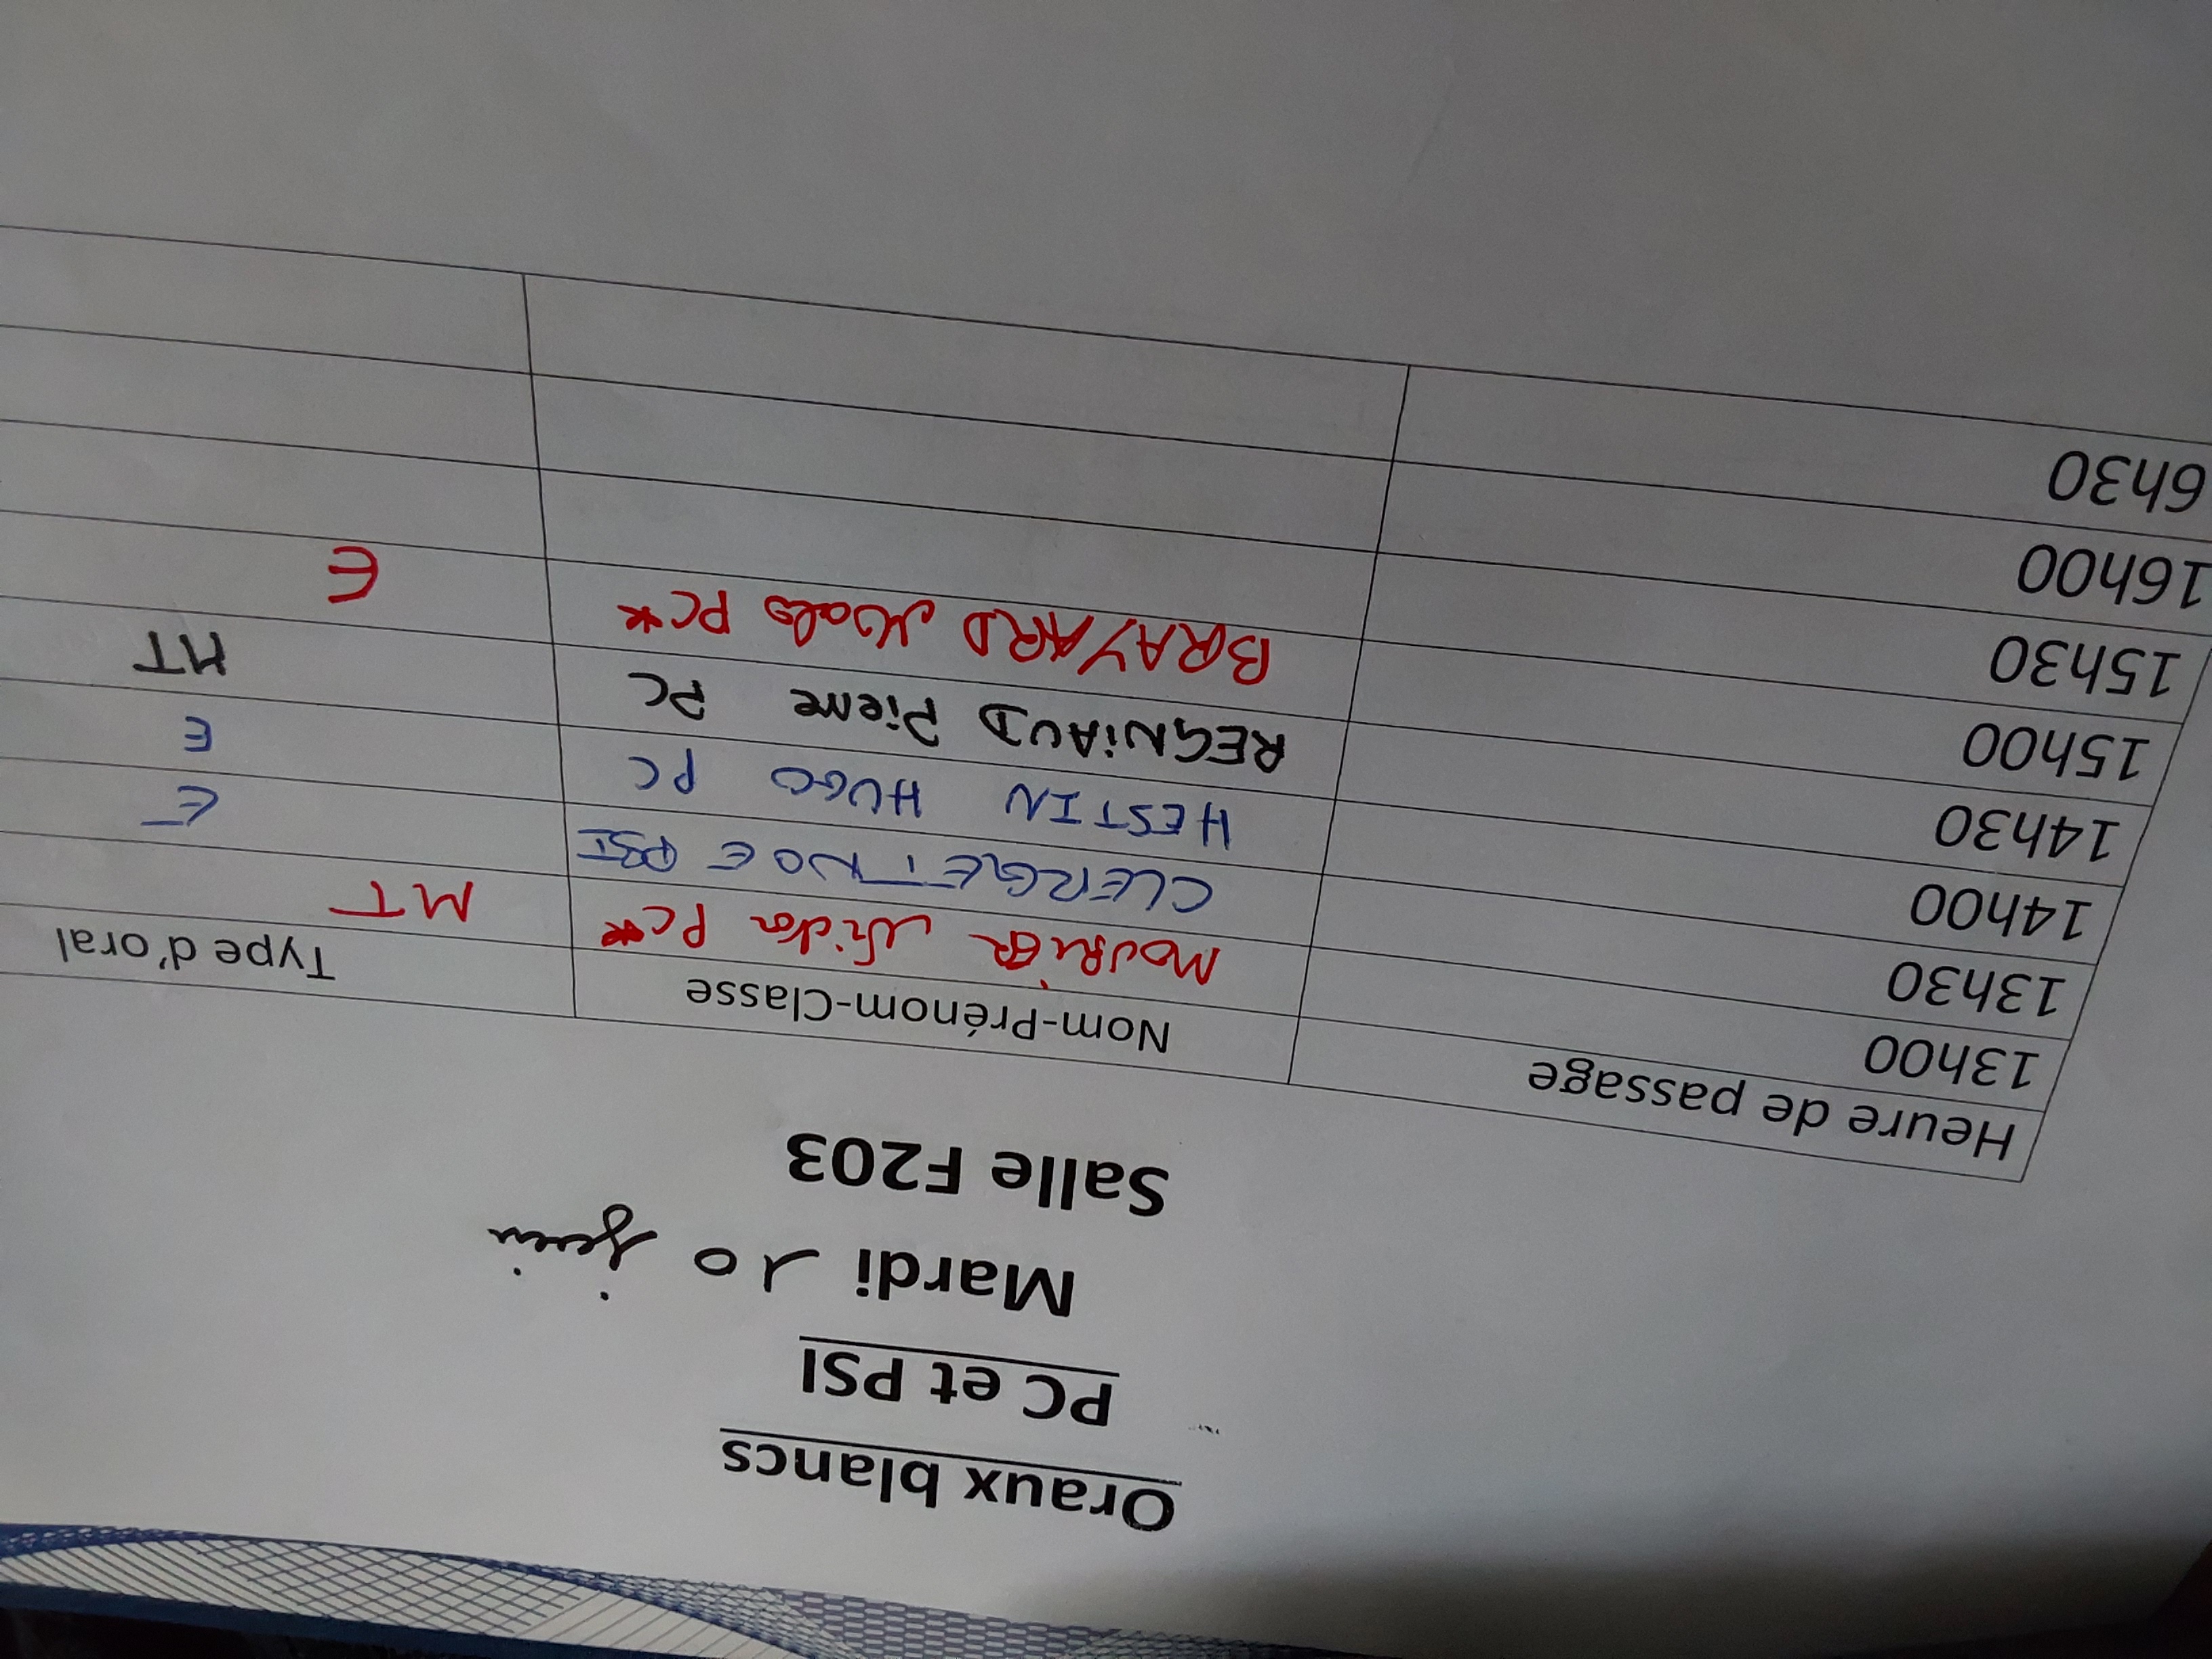 Oraux blancs
PC et PSI
Mardi 10 juin
Salle F203
Heure de passage Nom-Prénom-Classe Type d'oral
13h00 MOURIER PC* MT
13h30 CLERGET NOE PSI E
14h00 HESTIN HUGO PC E
14h30 REGNIAUD Pierre PC MT
15h00 BRAYARD PC* E
15h30
16h00
6h30